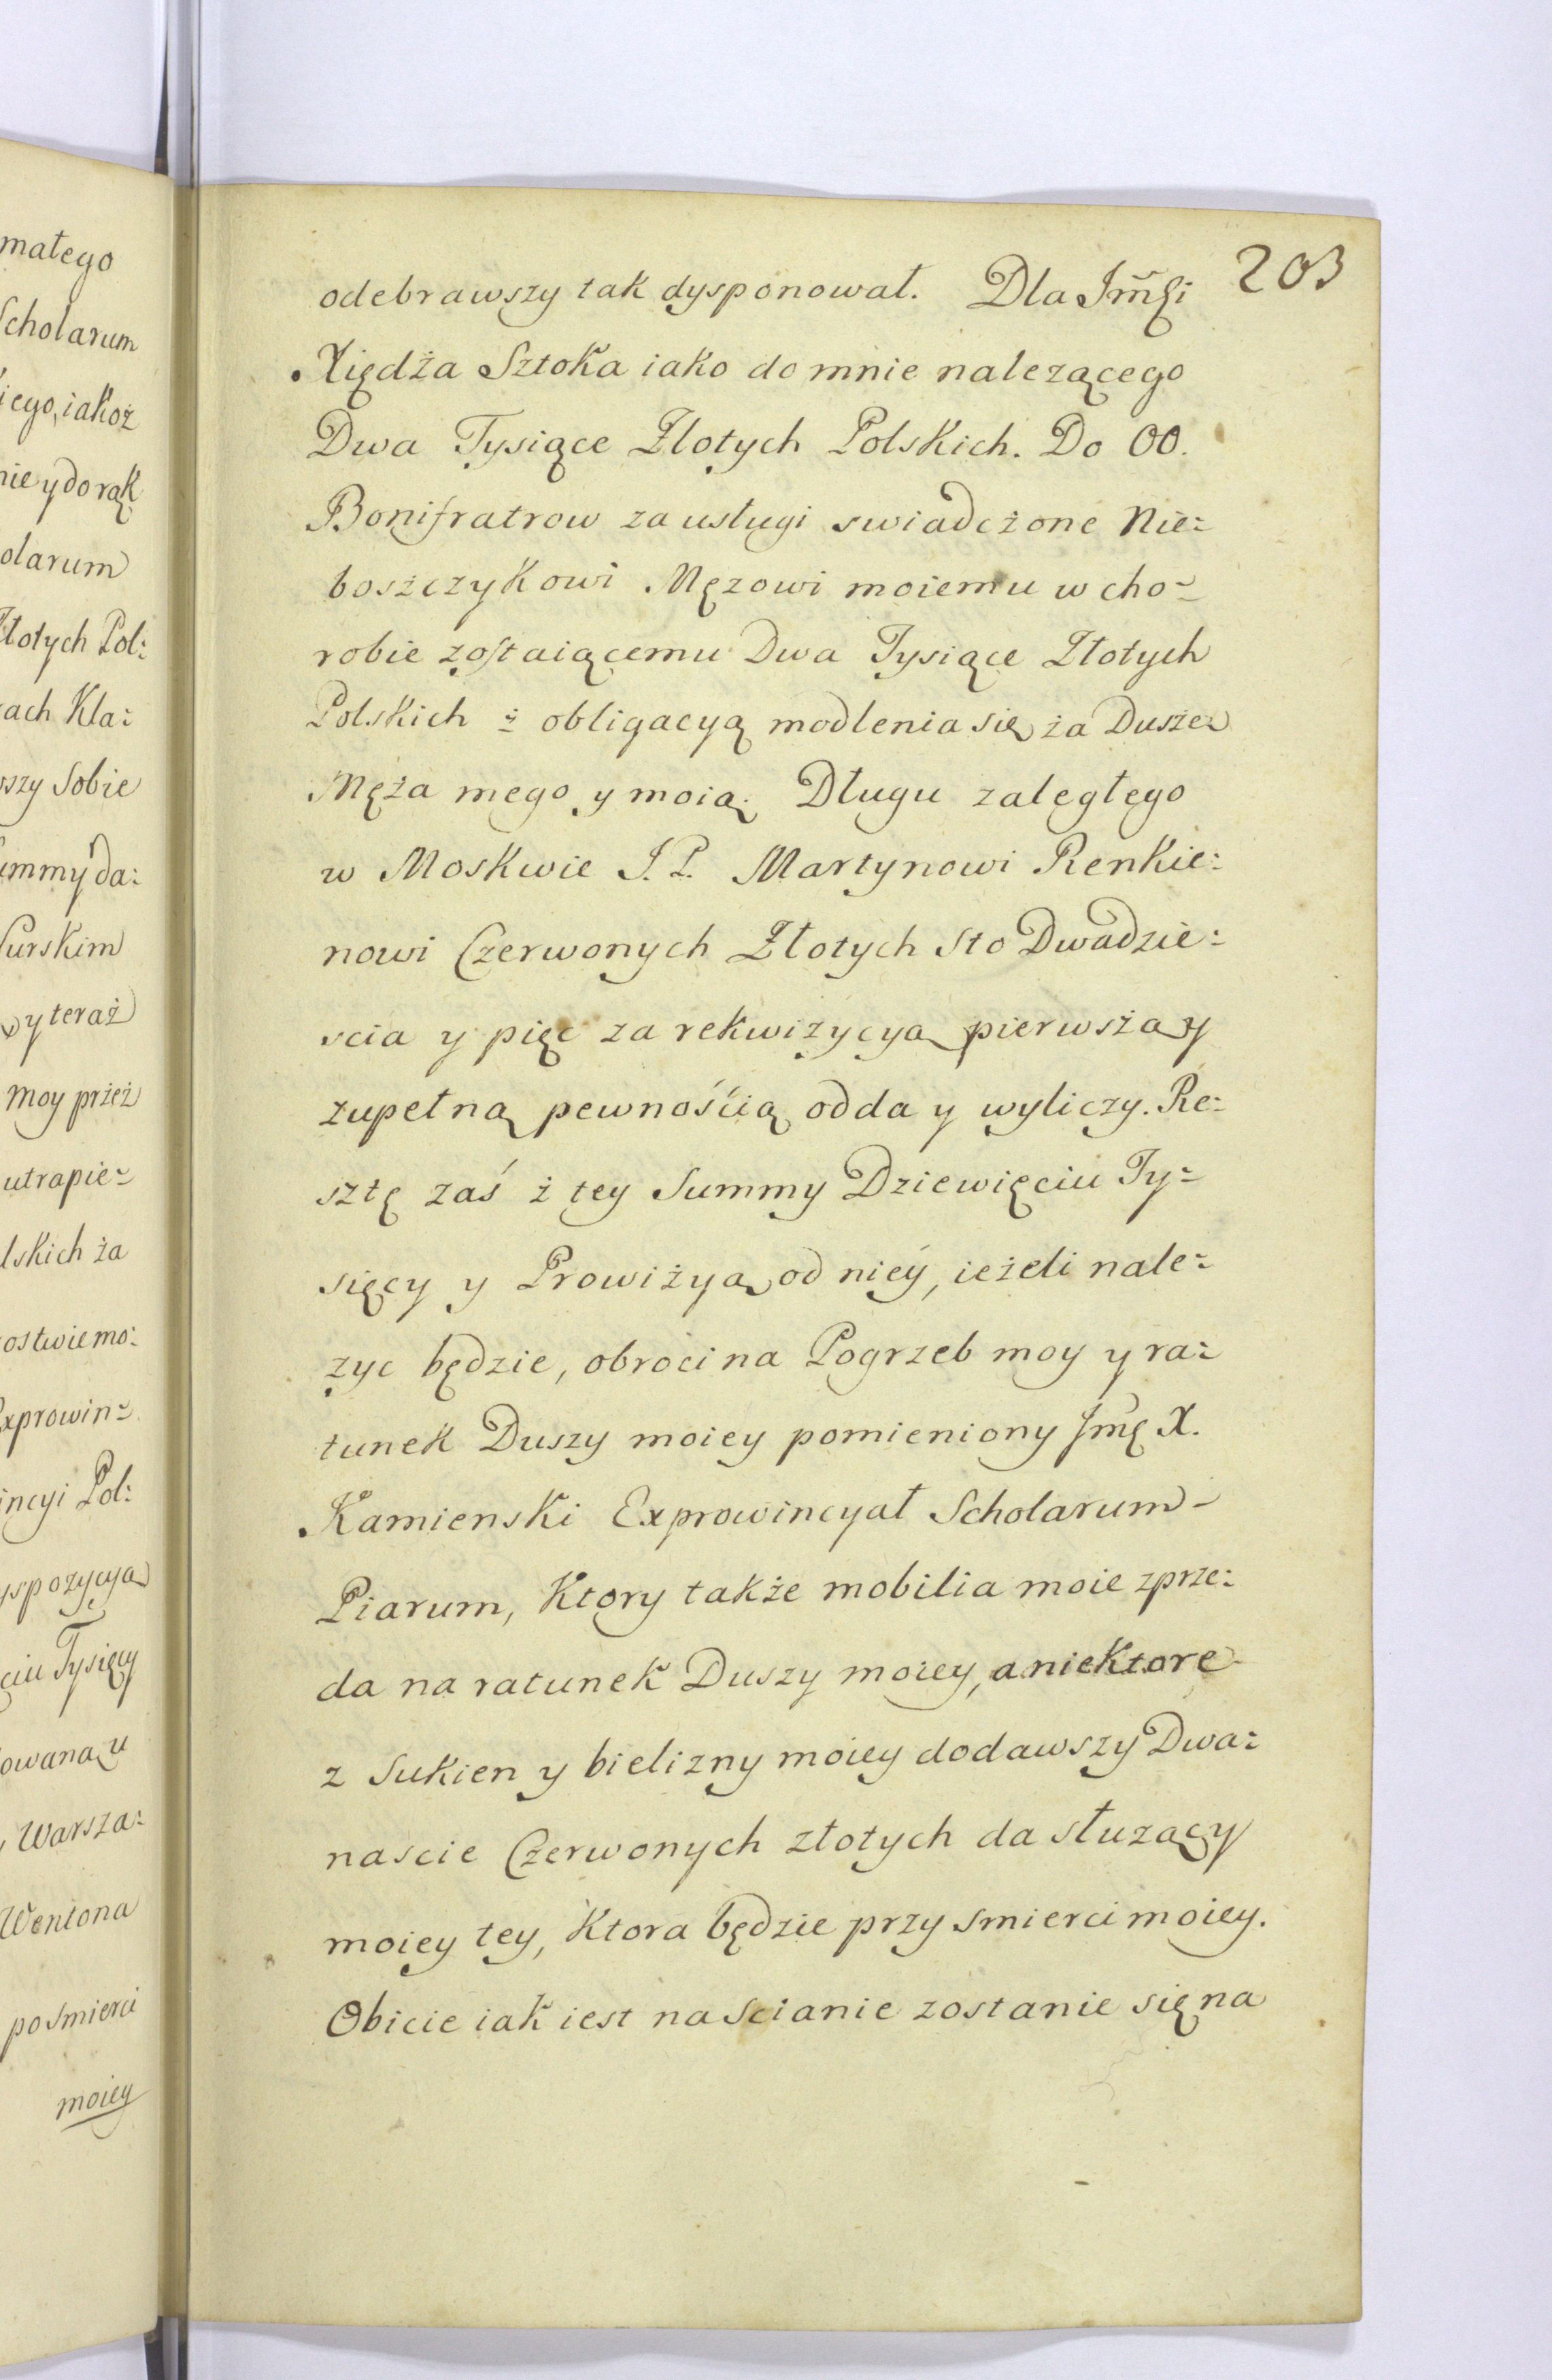 małego
Scholarum
iego, iakoż
nie y do rąk
olarum
Złotych Pol:
ach Kla:
wszy Sobie
ummy da:
Purskim
y teraż
moy przeż
utrapie:
lskich ża
ostwie mo:
Exprowin:
incyi Pol:
yspozycyą
ciu Tysięcy
owaną u
Warsza:
Weniona
po smierci
moiey
203
odebrawszy tak dysponował. Dla Jm̃ści
Xiędża Sztoka iako do mnie nalezącego
Dwa Tysiące Złotych Polskich. Do OO.
Bonifratrow za usługi swiadcżone Nie:
bosżczykowi Męzowi moiemu w cho:
robie zostaiącemu Dwa Tysiące Złotych
Polskich ż obligacyą modlenia się ża Dusżę
Męża mego y moią. Długu zaległego
w Moskwie J. P. Martynowi Renkie:
nowi Czerwonych Złotych Sto Dwadzie:
scia y pięc za rekwiżycyą pierwsżą y
zupełną pewnością odda y wyliczy. Re:
sztę zaś ż tey Summy Dziewięciu Ty:
sięcy y Prowiżyą od niey, ieżeli nale:
zyc będzie, obroci na Pogrzeb moy y ra:
tunek Duszy moiey pomieniony Jm̃ć X.
Kamienski Exprowincyał Scholarum
Piarum, Ktory także mobilia moie zprze:
da na ratunek Duszy moiey, a niektore
z Sukien y bielizny moiey dodawszy Dwa:
nascie Czerwonych złotych da służący
moiey tey, Ktora będzie przy smierci moiey.
Obicie iak iest na Scianie zostanie się na